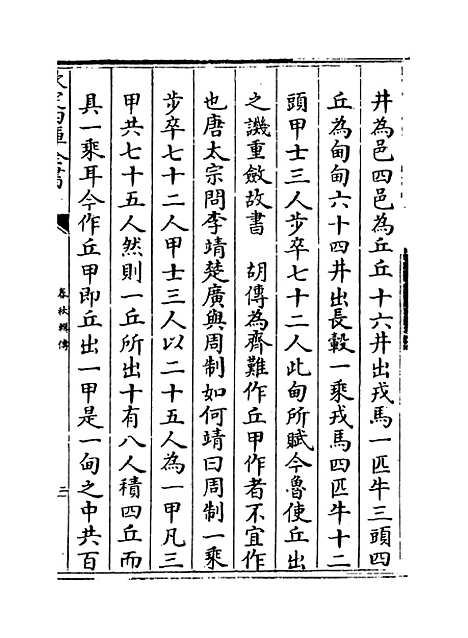 井為邑四邑為丘丘十六井出戎馬一匹牛三頭四
丘為甸甸六十四井出長轂一乘戎馬四匹牛十二
頭甲士三人步卒七十二人此甸所賦今魯使丘出
之譏重斂故書　胡傳為齊難作丘甲作者不宜作
也唐太宗問李靖楚廣與周制如何靖曰周制一乘
步卒七十二人甲士三人以二十五人為一甲凡三
甲共七十五人然則一丘所出十有八人積四丘而
具一乘耳今作丘甲即丘出一甲是一甸之中共百
欽定四庫全書
春秋輯傳
三